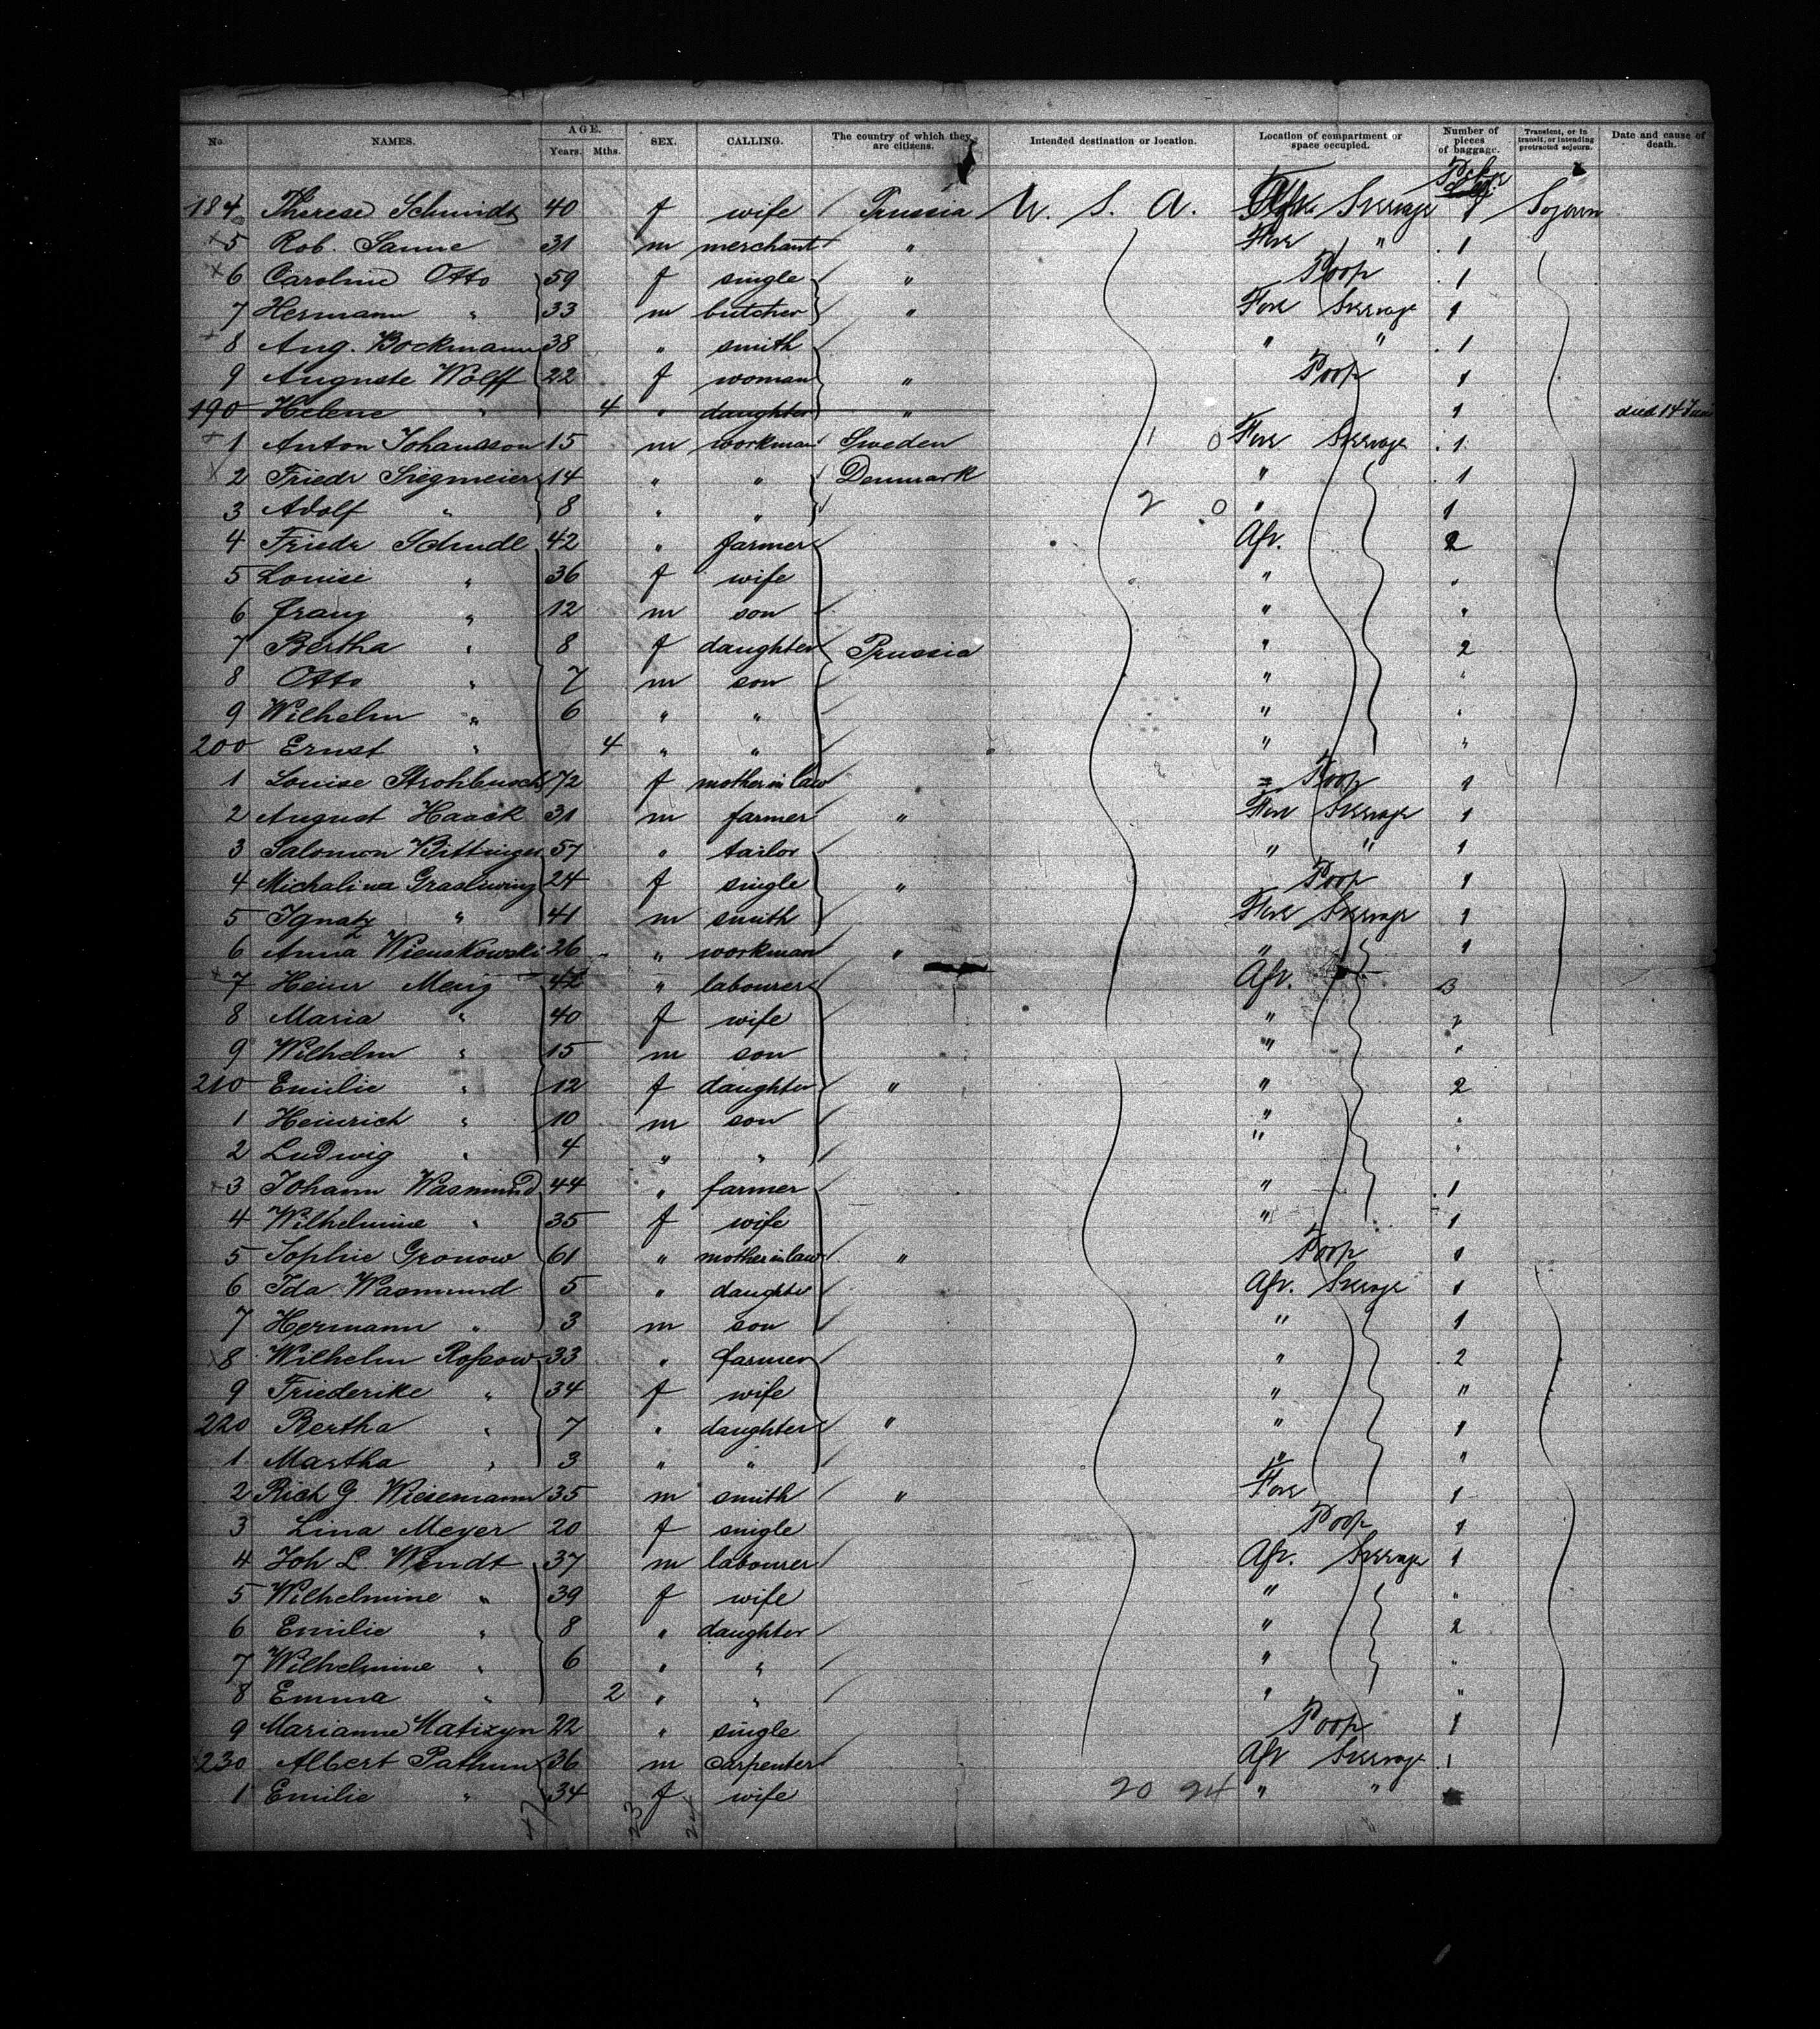 No. NAMES. AGE. Years. Mths. SEX. CALLING. The country of which they are citizens. Intended destination or location. Location of compartment or space occupied. Number of pieces of baggage. Transient, or in transit, or intending protracted sojourn. Date and cause of death.
184 Therese Schmidt 40 f wife Prussia U. S. A. Steerage 1 Sojourn
5 Rob. Sanne 31 m merchant " Fore " 1
6 Caroline Otto 59 f single " Poop 1
7 Hermann " 33 m butcher " Fore Steerage 1
8 Aug. Bockmann 38 " smith " " 1
9 Auguste Wolff 22 f woman " Poop 1
190 Helene " 4 " daughter " 1 died 14 June
1 Anton Johansson 15 m workman Sweden 1 0 Fore Steerage 1
2 Friedr Siegmeier 14 " " Denmark " 1
3 Adolf " 8 " " 2 0 " 1
4 Friedr Schudl 42 " farmer Aft. 2
5 Louise " 36 f wife " "
6 Franz " 12 m son " "
7 Bertha " 8 f daughter Prussia " 2
8 Otto " 7 m son " "
9 Wilhelm " 6 " " " "
200 Ernst " 4 " " " "
1 Louise Strohbusch 72 f mother in law Poop 1
2 August Haack 31 m farmer " Fore Steerage 1
3 Salomon Bittinger 57 " tailor " " 1
4 Michalina 24 f single " Poop 1
5 Ignatz " 41 m smith Fore Steerage 1
6 Anna Wienskowski 26 " workman " " 1
7 Heinr Meng 42 " labourer Aft. 3
8 Maria " 40 f wife " "
9 Wilhelm " 15 m son " "
210 Emilie " 12 f daughter " " 2
1 Heinrich " 10 m son " "
2 Ludwig " 4 " " " "
3 Johann Wasmund 44 " farmer " 1
4 Wilhelmine " 35 f wife " 1
5 Sophie Gronow 61 " mother in law " Poop 1
6 Ida Wasmund 5 " daughter Aft. Steerage 1
7 Hermann " 3 m son " 1
8 Wilhelm Roſsow 33 " farmer " 2
9 Friederike " 34 f wife " "
220 Bertha " 7 " daughter " " 1
1 Martha " 3 " " " "
2 Rich G. Wiesemann 35 m smith " Fore 1
3 Lina Meyer 20 f single Poop 1
4 Joh L. Wendt 37 m labourer Aft. Steerage 1
5 Wilhelmine " 39 f wife " "
6 Emilie " 8 " daughter " 2
7 Wilhelmine " 6 " " " "
8 Emma " 2 " " " "
9 Marianne Matizyn 22 " single Poop 1
230 Albert Pathun 36 m carpenter Aft Steerage 1
1 Emilie " 34 f wife 20 24 " "
47 23 24